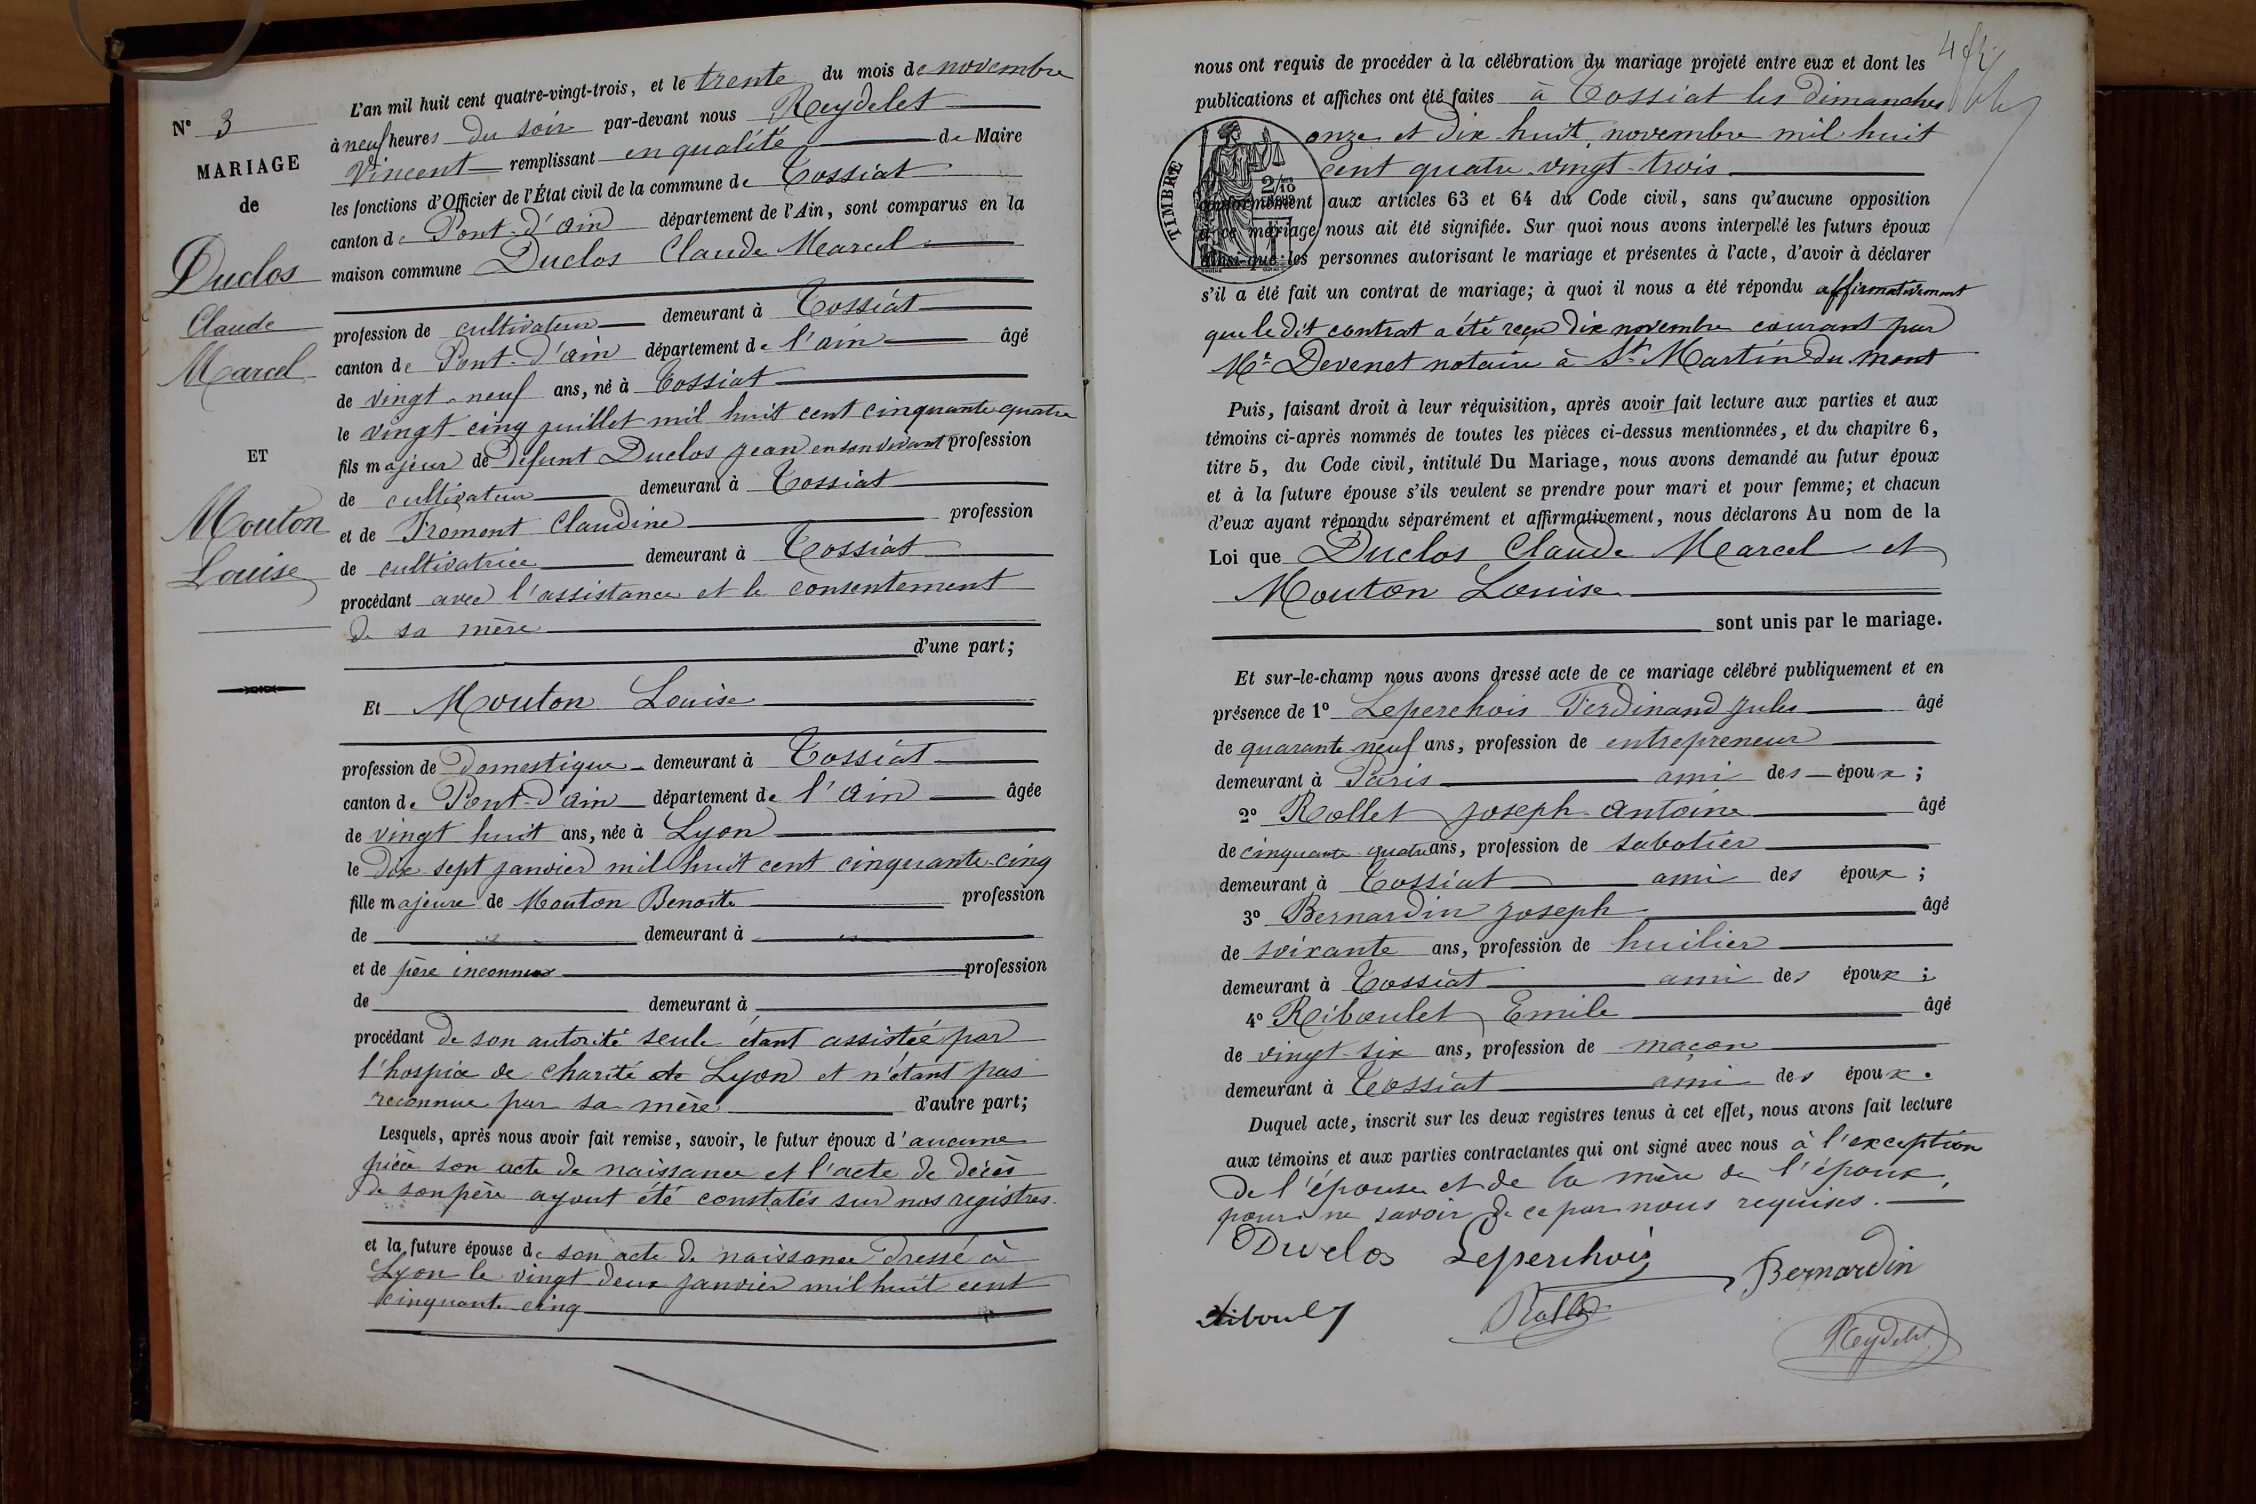 N° 3
MARIAGE
de
Duclos
Claude
Marcel
ET
Mouton
Louise
L'an mil huit cent quatre-vingt-trois, et le trente du mois de novembre
à neuf heures du soir par-devant nous Reydelet
Vincent remplissant en qualité de Maire
les fonctions d'Officier de l'État civil de la commune de Tossiat
canton de Pont-d'ain département de l'Ain, sont comparus en la
maison commune Duclos Claude Marcel
profession de cultivateur demeurant à Tossiat
canton de Pont-d'ain département de l'ain âgé
de vingt-neuf ans, né à Tossiat
le vingt cinq juillet mil huit cent cinquante quatre
fils majeur de défunt Duclos Jean en son vivant profession
de cultivateur demeurant à Tossiat
et de Froment Claudine profession
de cultivatrice demeurant à Tossiat
procédant avec l'assistance et le consentement
de sa mère
d'une part;
Et Mouton Louise
profession de domestique demeurant à Tossiat
canton de Pont-d'ain département de l'ain âgée
de vingt huit ans, née à Lyon
le dix sept janvier mil huit cent cinquante-cinq
fille majeure de Mouton Benoite profession
de demeurant à
et de père inconnu profession
de demeurant à
procédant de son autorité seule étant assistée par
l'hospice de charité de Lyon et n'étant pas
reconnue par sa mère d'autre part;
Lesquels, après nous avoir fait remise, savoir, le futur époux d'aucune
pièce son acte de naissance et l'acte de décès
de son père ayant été constatés sur nos registres.
et la future épouse de son acte de naissance dressé à
Lyon le vingt deux janvier mil huit cent
cinquante cinq
nous ont requis de procéder à la célébration du mariage projeté entre eux et dont les
publications et affiches ont été faites à Tossiat les dimanches
onze et dix huit novembre mil huit
cent quatre-vingt-trois
TIMBRE
2/10
conformément aux articles 63 et 64 du Code civil, sans qu'aucune opposition
à ce mariage nous ait été signifiée. Sur quoi nous avons interpellé les futurs époux
ainsi que les personnes autorisant le mariage et présentes à l'acte, d'avoir à déclarer
s'il a été fait un contrat de mariage; à quoi il nous a été répondu affirmativement
que le dit contrat a été reçu dix novembre courant par
Me Devenet notaire à St Martin du mont
Puis, faisant droit à leur réquisition, après avoir fait lecture aux parties et aux
témoins ci-après nommés de toutes les pièces ci-dessus mentionnées, et du chapitre 6,
titre 5, du Code civil, intitulé Du Mariage, nous avons demandé au futur époux
et à la future épouse s'ils veulent se prendre pour mari et pour femme; et chacun
d'eux ayant répondu séparément et affirmativement, nous déclarons Au nom de la
Loi que Duclos Claude Marcel et
Mouton Louise
sont unis par le mariage.
Et sur-le-champ nous avons dressé acte de ce mariage célébré publiquement et en
présence de 1° Leperchois Ferdinand Jules âgé
de quarante neuf ans, profession de entrepreneur
demeurant à Paris ami des époux;
2° Rollet Joseph Antoine âgé
de cinquante quatre ans, profession de sabotier
demeurant à Tossiat ami des époux;
3° Bernardin Joseph âgé
de soixante ans, profession de huilier
demeurant à Tossiat ami des époux;
4° Riboulet Emile âgé
de vingt-six ans, profession de maçon
demeurant à Tossiat ami des époux.
Duquel acte, inscrit sur les deux registres tenus à cet effet, nous avons fait lecture
aux témoins et aux parties contractantes qui ont signé avec nous à l'exception
de l'épouse et de la mère de l'époux,
pour ne savoir de ce par nous requises.
Duclos Leperchois Bernardin
Rollet
Reydelet